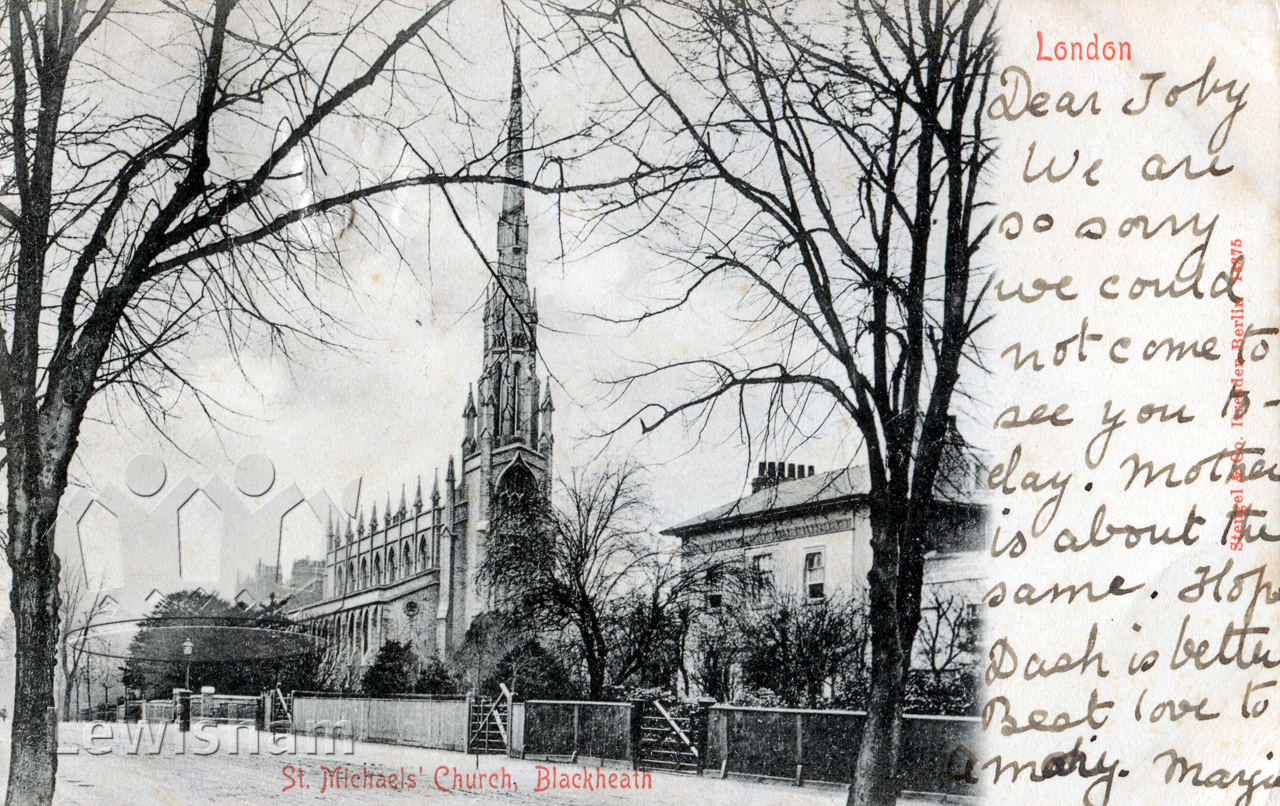 London
Dear Toby
We are
so sorry
we could
not come to
see you to-
day. Mother
is about the
same. Hope
Dash is better
Best love to
St. Michaels' Church, Blackheath
Stengel & Co. Dresden-Berlin
Lewisham